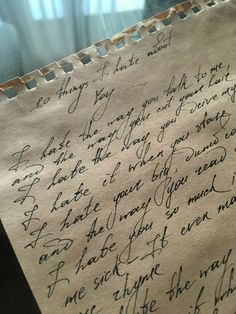 10 things I hate about
You -
I hate the way you talk to me,
and the way you cut your hair
I hate the way you drive my
I hate it when you stare
I hate your big dumb co
and the way you read m
I hate you so much i
me sick - It even ma
me rhyme
I hate the way